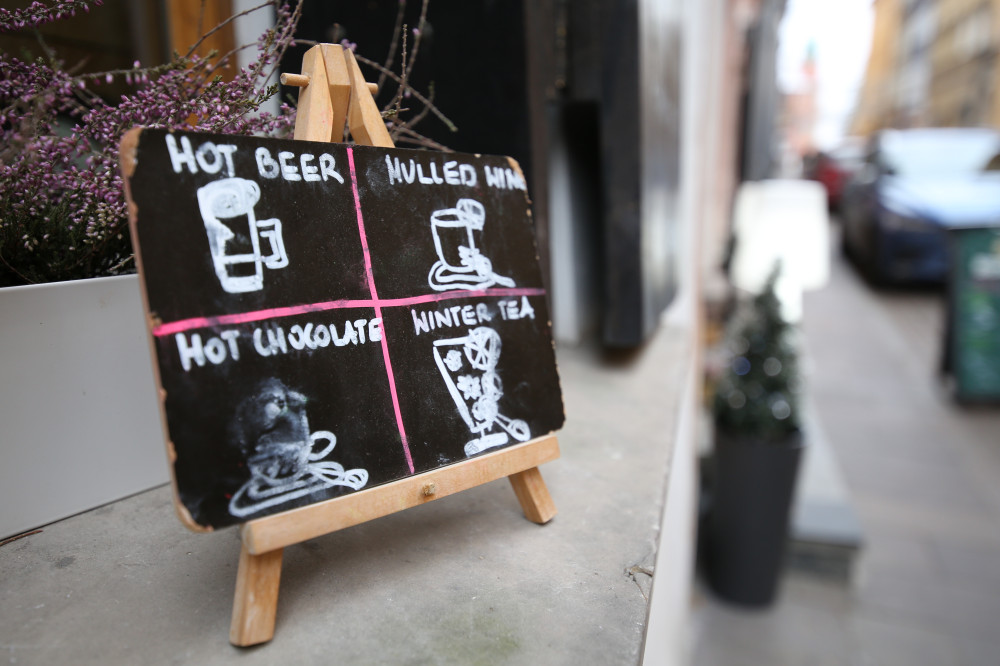 HOT BEER
MULLED WINE
HOT CHOCOLATE
WINTER TEA